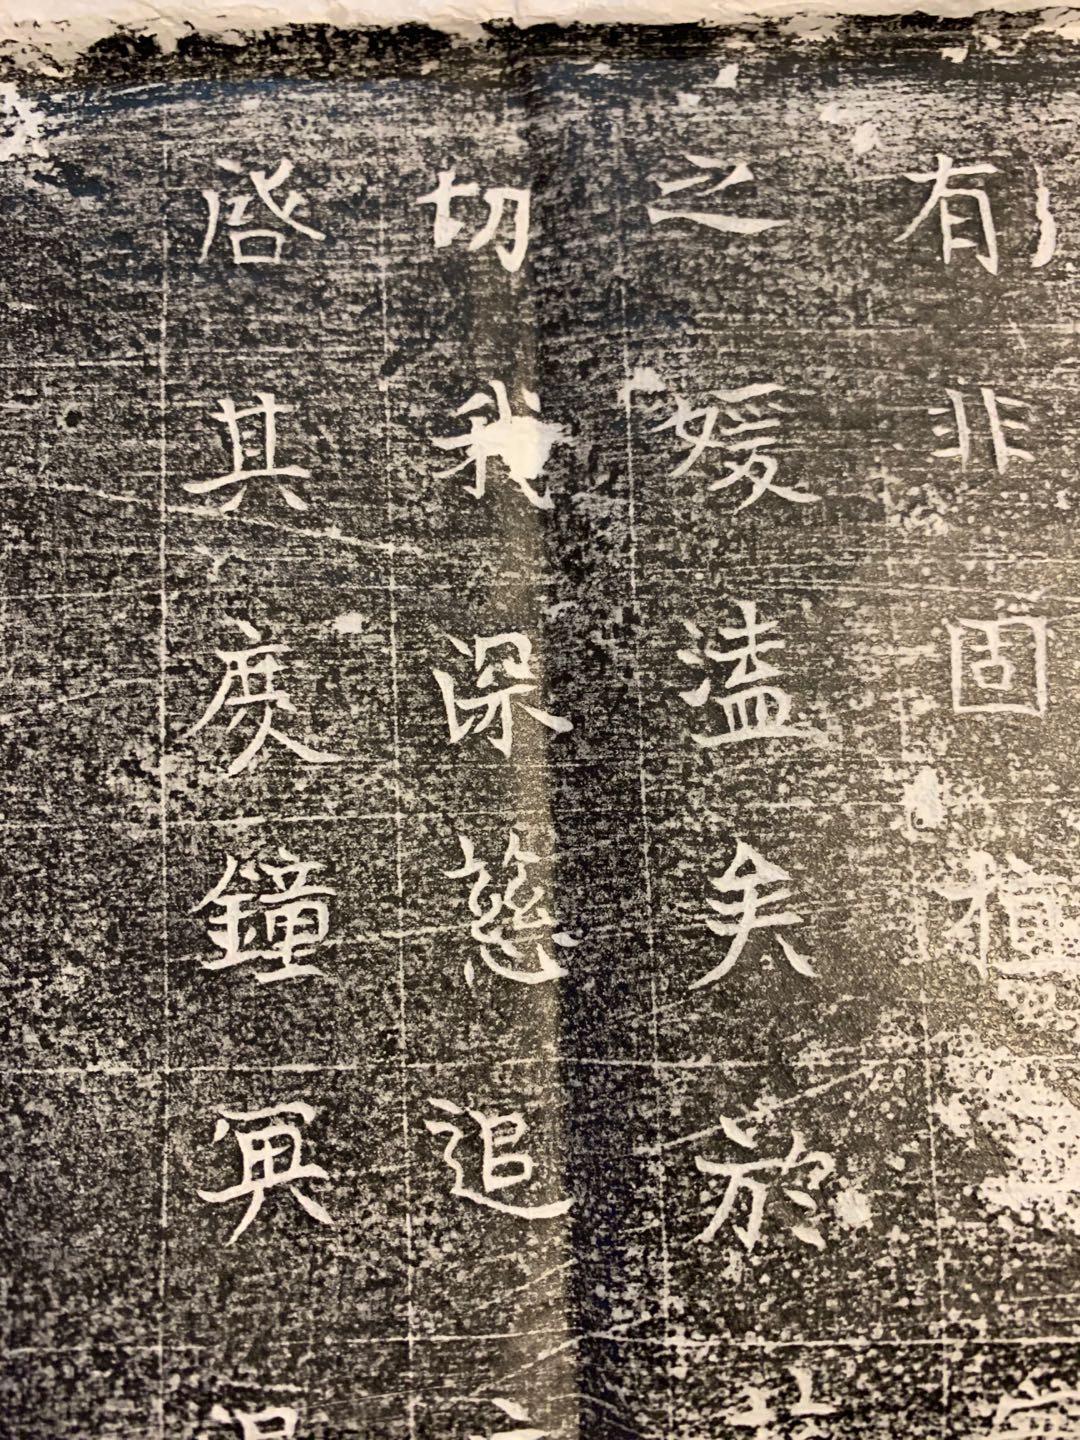 有非固植
之媛溘矣於
切我深慈追
啓其庚鐘冥